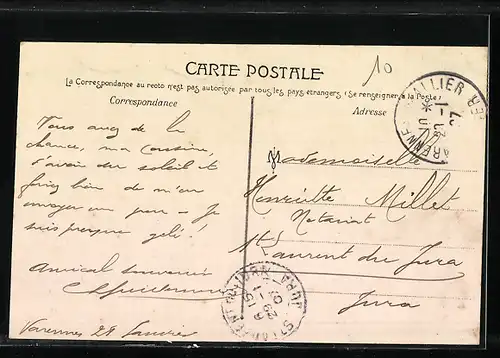 10
CARTE POSTALE
La Correspondance au recto n'est pas autorisée par tous les pays étrangers (Se renseigner à la Poste)
Correspondance
Adresse
ALLIER
Vous avez de la
chance, ma cousine,
d'avoir du soleil et
feriez bien de m'en
envoyer un peu - Je
suis presque gelé!
Amical souvenir
Varennes 28 Janvier
Mademoiselle
Henriette Millet
Notariat
St Laurent du Jura
Jura
JURA